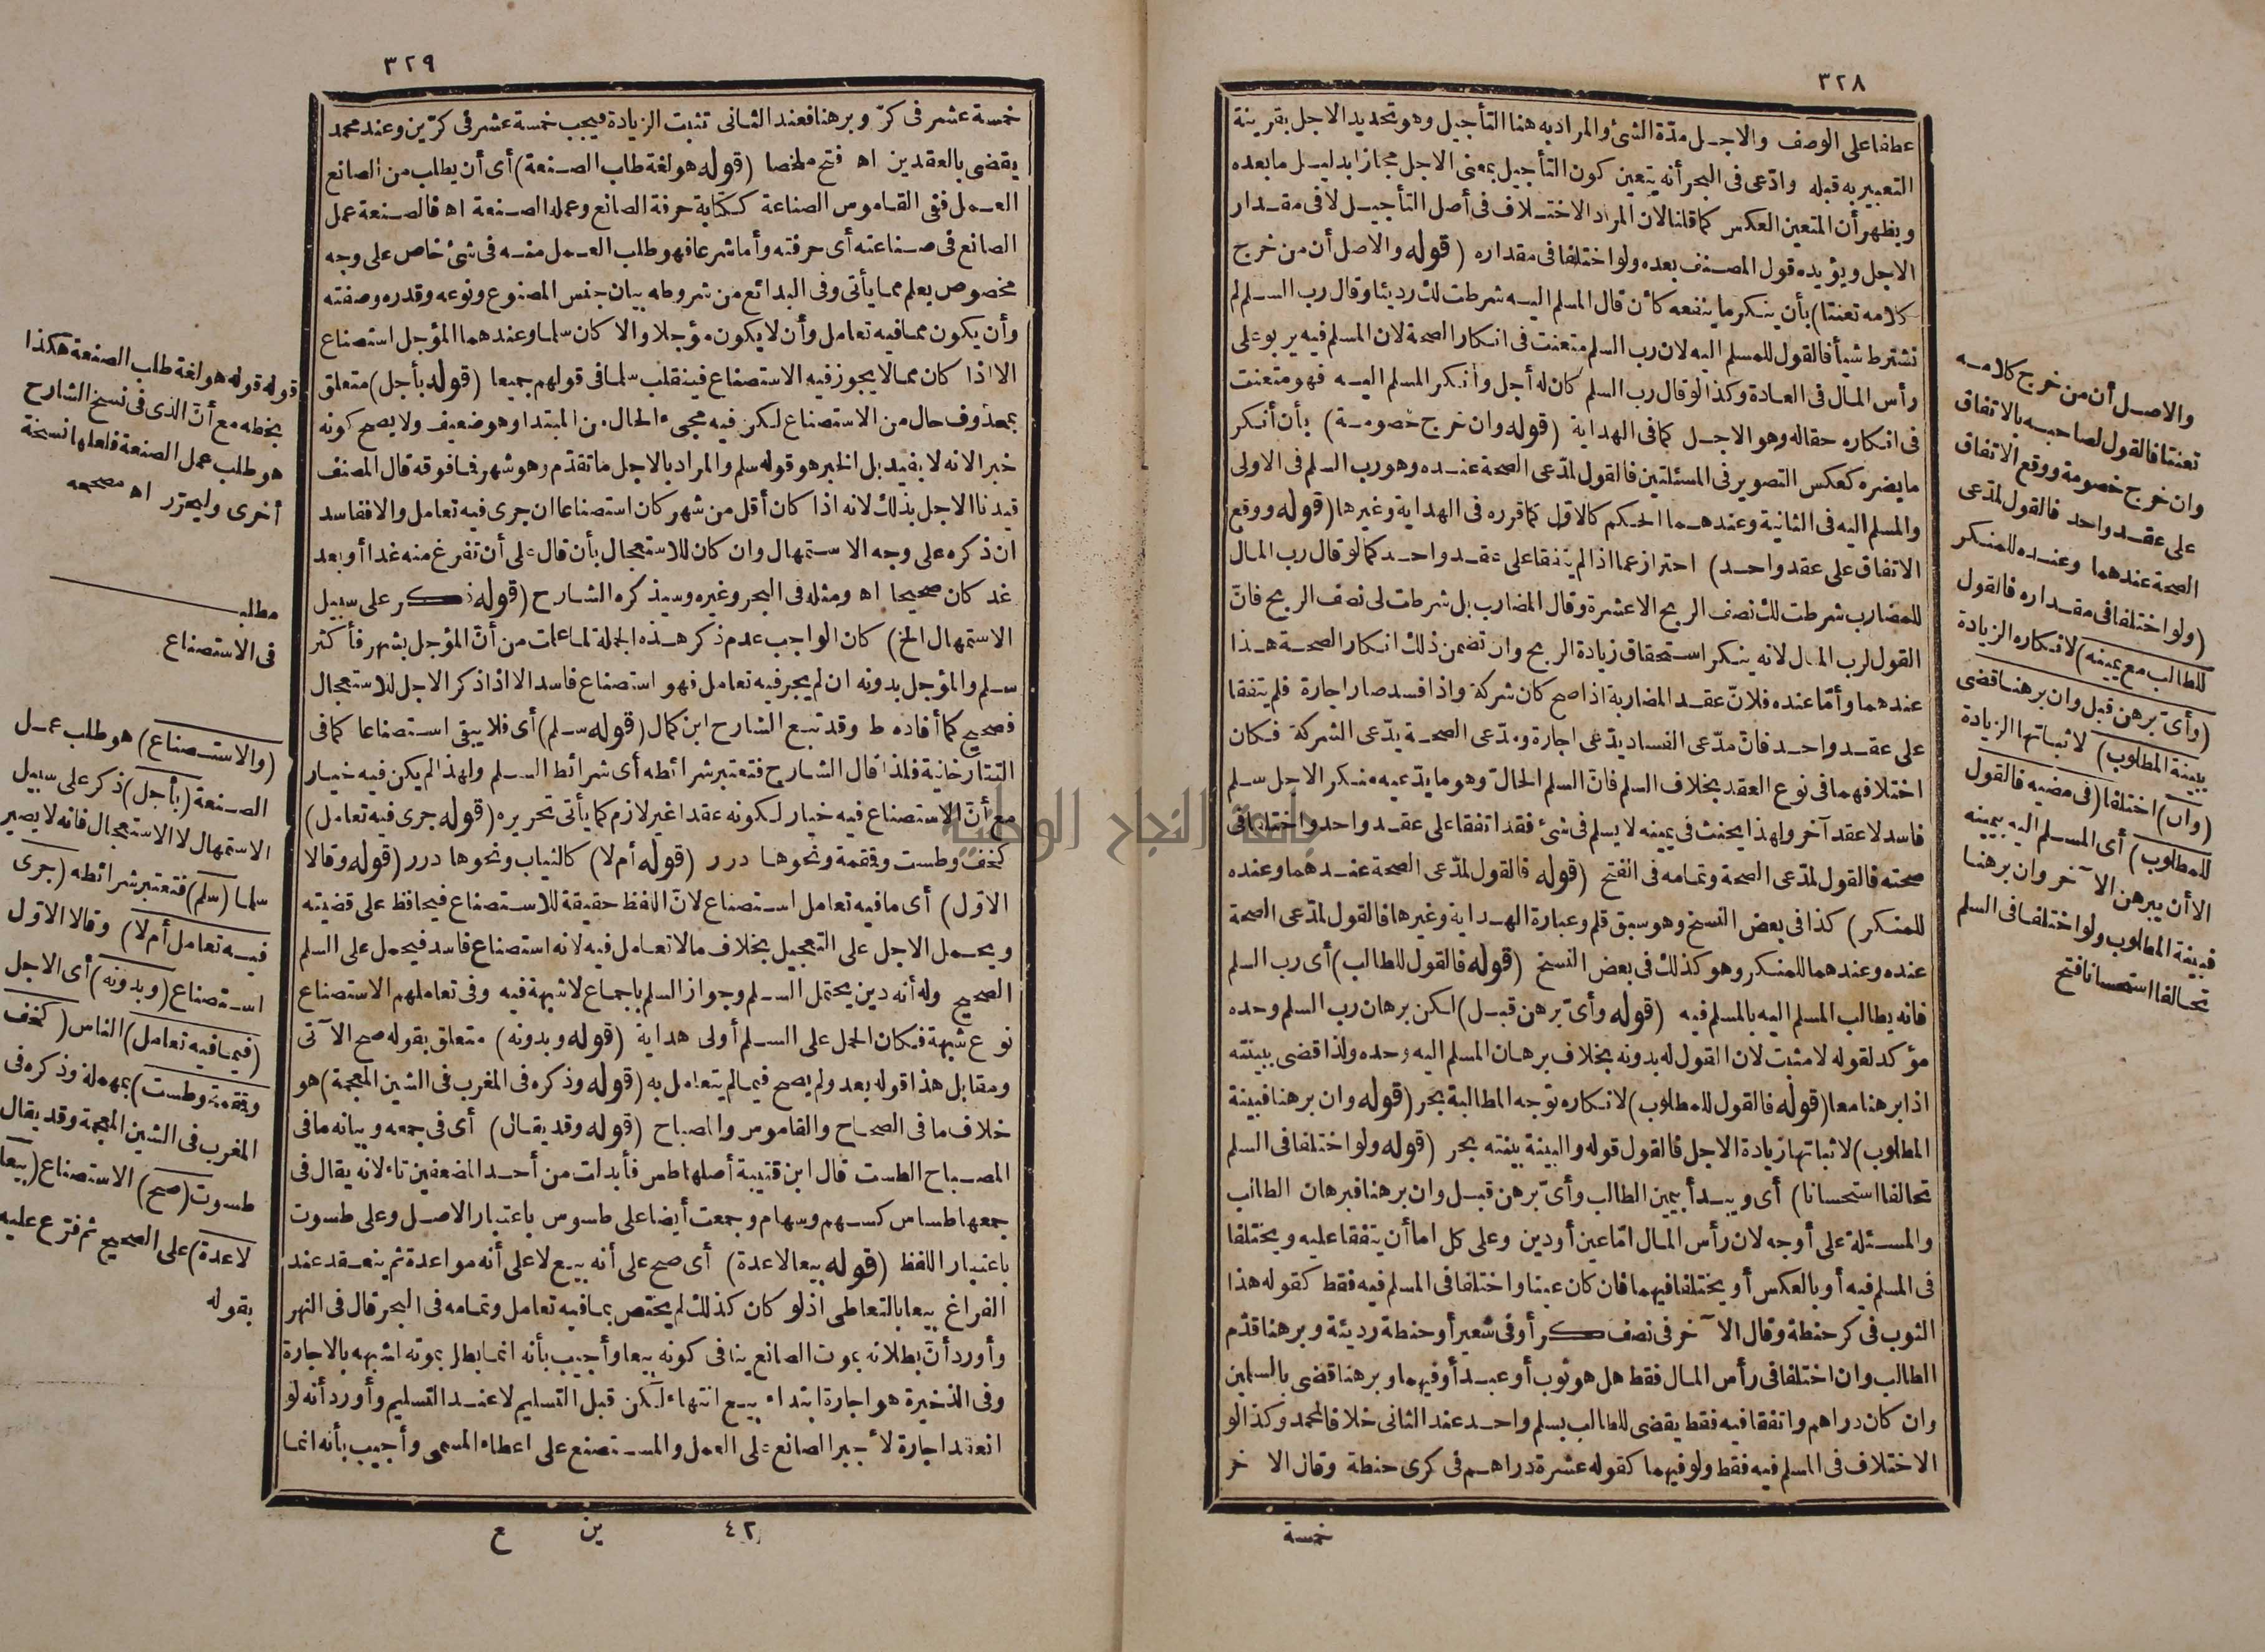 ٣٢٨
عطفا على الوصف والاجل مدّة الشئ والمراد به هنا التأجيل وهو تحديد الاجل بقرينة
التعبير به قبله وادّعى فى البحر أنه يتعين كون التأجيل بمعنى الاجل مجازا بدليل ما بعده
ويظهر أن المتعين العكس كما قلنا لان المراد الاختلاف فى أصل التأجيل لا فى مقدار
الاجل ويؤيده قول المصنف بعده ولو اختلفا فى مقداره (قوله والاصل أن من خرج
كلامه تعنتا) بأن ينكر ما ينفعه كأن قال المسلم اليه شرطت لك رديئا وقال رب السلم لم
نشترط شيأ فالقول للمسلم اليه لان رب السلم متعنت فى انكار الصحة لان المسلم فيه يربو على
رأس المال فى العادة وكذا لو قال رب السلم كان له أجل وأنكر المسلم اليه فهو متعنت
فى انكاره حقاله وهو الاجل كما فى الهداية (قوله وان خرج خصومة) بأن أنكر
ما يضره كعكس التصوير فى المسئلتين فالقول لمدّعى الصحة عنده وهو رب السلم فى الاولى
والمسلم اليه فى الثانية وعندهما الحكم كالاوّل كما قرره فى الهداية وغيرها (قوله ووقع
الاتفاق على عقد واحد) احتراز عما اذا لم يتفقا على عقد واحد كما لو قال رب المال
للمضارب شرطت لك نصف الربح الا عشرة وقال المضارب بل شرطت لى نصف الربح فانّ
القول لرب المال لانه ينكر استحقاق زيادة الربح وان تضمن ذلك انكار الصحة هذا
عندهما وأمّا عنده فلانّ عقد المضاربة اذا صح كان شركة واذا فسد صار اجارة فلم يتفقا
على عقد واحد فانّ مدّعى الفساد يدّعى اجارة ومدّعى الصحة يدّعى الشركة فكان
اختلافهما فى نوع العقد بخلاف السلم فانّ السلم الحالّ وهو ما يدّعيه منكر الاجل سلم
فاسد لا عقد آخر ولهذا يحنث فى يمينه لا يسلم فى شئ فقد اتفقا على عقد واحد واختلفا فى
صحته فالقول لمدّعى الصحة وتمامه فى الفتح (قوله فالقول لمدّعى الصحة عندهما وعنده
للمنكر) كذا فى بعض النسخ وهو سبق قلم وعبارة الهداية وغيرها فالقول لمدّعى الصحة
عنده وعندهما للمنكر وهو كذلك فى بعض النسخ (قوله فالقول للطالب) أى رب السلم
فانه يطالب المسلم اليه بالمسلم فيه (قوله وأىّ برهن قبل) لكن برهان رب السلم وحده
مؤكد لقوله لا مثبت لان القول له بدونه بخلاف برهان المسلم اليه وحده ولذا قضى ببينته
اذا برهنا معا (قوله فالقول للمطلوب) لانكاره توجه المطالبة بحر (قوله وان برهنا فبينة
المطلوب) لاثباتها زيادة الاجل فالقول قوله والبينة بينته بحر (قوله ولو اختلفا فى السلم
تحالفا استحسانا) أى ويبدأ بيمين الطالب وأىّ برهن قبل وان برهنا فبرهان الطالب
والمسئلة على أوجه لان رأس المال امّا عين أو دين وعلى كل اما أن يتفقا عليه ويختلفا
فى المسلم فيه أو بالعكس أو يختلفا فيهما فان كان عينا واختلفا فى المسلم فيه فقط كقوله هذا
الثوب فى كر حنطة وقال الآخر فى نصف كر أو فى شعير أو حنطة رديئة وبرهنا قدّم
الطالب وان اختلفا فى رأس المال فقط هل هو ثوب أو عبد أو فيهما وبرهنا قضى بالسلمين
وان كان دراهم واتفقا فيه فقط يقضى للطالب بسلم واحد عند الثانى خلافا لمحمد وكذا لو
الاختلاف فى المسلم فيه فقط ولو فيهما كقوله عشرة دراهم فى كرى حنطة وقال الآخر
خمسة
والاصل أن من خرج كلامه
تعنتا فالقول لصاحبه بالاتفاق
وان خرج خصومة ووقع الاتفاق
على عقد واحد فالقول لمدّعى
الصحة عندهما وعنده للمنكر
(ولو اختلفا فى مقداره فالقول
للطالب مع يمينه) لانكاره الزيادة
(وأىّ برهن قبل وان برهنا قضى
ببينة المطلوب) لاثباتها الزيادة
(وان) اختلفا (فى مضيه فالقول
للمطلوب) أى المسلم اليه بيمينه
الا أن يبرهن الآخر وان برهنا
فبينة المطلوب ولو اختلفا فى السلم
تحالفا استحسانا فتح
٣٢٩
خمسة عشر فى كرّ وبرهنا فعند الثانى تثبت الزيادة فيجب خمسة عشر فى كرّين وعند محمد
يقضى بالعقدين اه فتح ملخصا (قوله هو لغة طلب الصنعة) أى أن يطلب من الصانع
العمل ففى القاموس الصناعة ككتابة حرفة الصانع وعمله الصنعة اه فالصنعة عمل
الصانع فى صناعته أى حرفته وأما شرعا فهو طلب العمل منه فى شئ خاص على وجه
مخصوص يعلم مما يأتى وفى البدائع من شروطه بيان جنس المصنوع ونوعه وقدره وصفته
وأن يكون مما فيه تعامل وأن لا يكون مؤجلا والا كان سلما وعندهما المؤجل استصناع
الا اذا كان مما لا يجوز فيه الاستصناع فينقلب سلما فى قولهم جميعا (قوله بأجل) متعلق
بمحذوف حال من الاستصناع لكن فيه مجىء الحال من المبتدا وهو ضعيف ولا يصح كونه
خبرا لانه لا يفيد بل الخبر هو قوله سلم والمراد بالاجل ما تقدّم وهو شهر فما فوقه قال المصنف
قيدنا الاجل بذلك لانه اذا كان أقل من شهر كان استصناعا ان جرى فيه تعامل والا ففاسد
ان ذكره على وجه الاستمهال وان كان للاستعجال بأن قال على أن تفرغ منه غدا أو بعد
غد كان صحيحا اه ومثله فى البحر وغيره وسيذكره الشارح (قوله ذكر على سبيل
الاستمهال الخ) كان الواجب عدم ذكر هذه الجملة لما علمت من أنّ المؤجل بشهر فأكثر
سلم والمؤجل بدونه ان لم يجر فيه تعامل فهو استصناع فاسد الا اذا ذكر الاجل للاستعجال
فصحيح كما أفاده ط وقد تبع الشارح ابن كمال (قوله سلم) أى فلا يبقى استصناعا كما فى
التتارخانية فلذا قال الشارح فتعتبر شرائطه أى شرائط السلم ولهذا لم يكن فيه خيار
مع أنّ الاستصناع فيه خيار لكونه عقدا غير لازم كما يأتى تحريره (قوله جرى فيه تعامل)
كخف وطست وقمقمة ونحوها درر (قوله أم لا) كالثياب ونحوها درر (قوله وقالا
الاوّل) أى ما فيه تعامل استصناع لانّ اللفظ حقيقة للاستصناع فيحافظ على قضيته
ويحمل الاجل على التعجيل بخلاف ما لا تعامل فيه لانه استصناع فاسد فيحمل على السلم
الصحيح وله أنه دين يحتمل السلم وجواز السلم باجماع لا شبهة فيه وفى تعاملهم الاستصناع
نوع شبهة فكان الحمل على السلم أولى هداية (قوله وبدونه) متعلق بقوله صح الآتى
ومقابل هذا قوله بعد ولم يصح فيما لم يتعامل به (قوله وذكره فى المغرب فى الشين المعجمة) هو
خلاف ما فى الصحاح والقاموس والمصباح (قوله وقد يقال) أى فى جمعه وبيانه ما فى
المصباح الطست قال ابن قتيبة أصلها طس فأبدلت من أحد المضعفين تاء لانه يقال فى
جمعها طساس كسهم وسهام وجمعت أيضا على طسوس باعتبار الاصل وعلى طسوت
باعتبار اللفظ (قوله بيعا لا عدة) أى صح على أنه بيع لا على أنه مواعدة ثم ينعقد عند
الفراغ بيعا بالتعاطى اذ لو كان كذلك لم يختص بما فيه تعامل وتمامه فى البحر قال فى النهر
وأورد أنّ بطلانه بموت الصانع ينافى كونه بيعا وأجيب بأنه انما بطل بموته لشبهه بالاجارة
وفى الذخيرة هو اجارة ابتداء بيع انتهاء لكن قبل التسليم لا عند التسليم وأورد أنه لو
انعقد اجارة لأجبر الصانع على العمل والمستصنع على اعطاء المسمى وأجيب بأنه انما
٤٢ ين ع
قوله قوله هو لغة طلب الصنعة هكذا
بخطه مع أنّ الذى فى نسخ الشارح
هو طلب عمل الصنعة فلعلها نسخة
أخرى وليحرّر اه مصححه
مطلب
فى الاستصناع
(والاستصناع) هو طلب عمل
الصنعة (بأجل) ذكر على سبيل
الاستمهال لا الاستعجال فانه لا يصير
سلما (سلم) فتعتبر شرائطه (جرى
فيه تعامل أم لا) وقالا الاوّل
استصناع (وبدونه) أى الاجل
(فيما فيه تعامل) الناس (كخف
وقمقمة وطست) بمهملة وذكره فى
المغرب فى الشين المعجمة وقد يقال
طسوت (صح) الاستصناع (بيعا
لا عدة) على الصحيح ثم فرّع عليه
بقوله
جامعة النجاح الوطنية